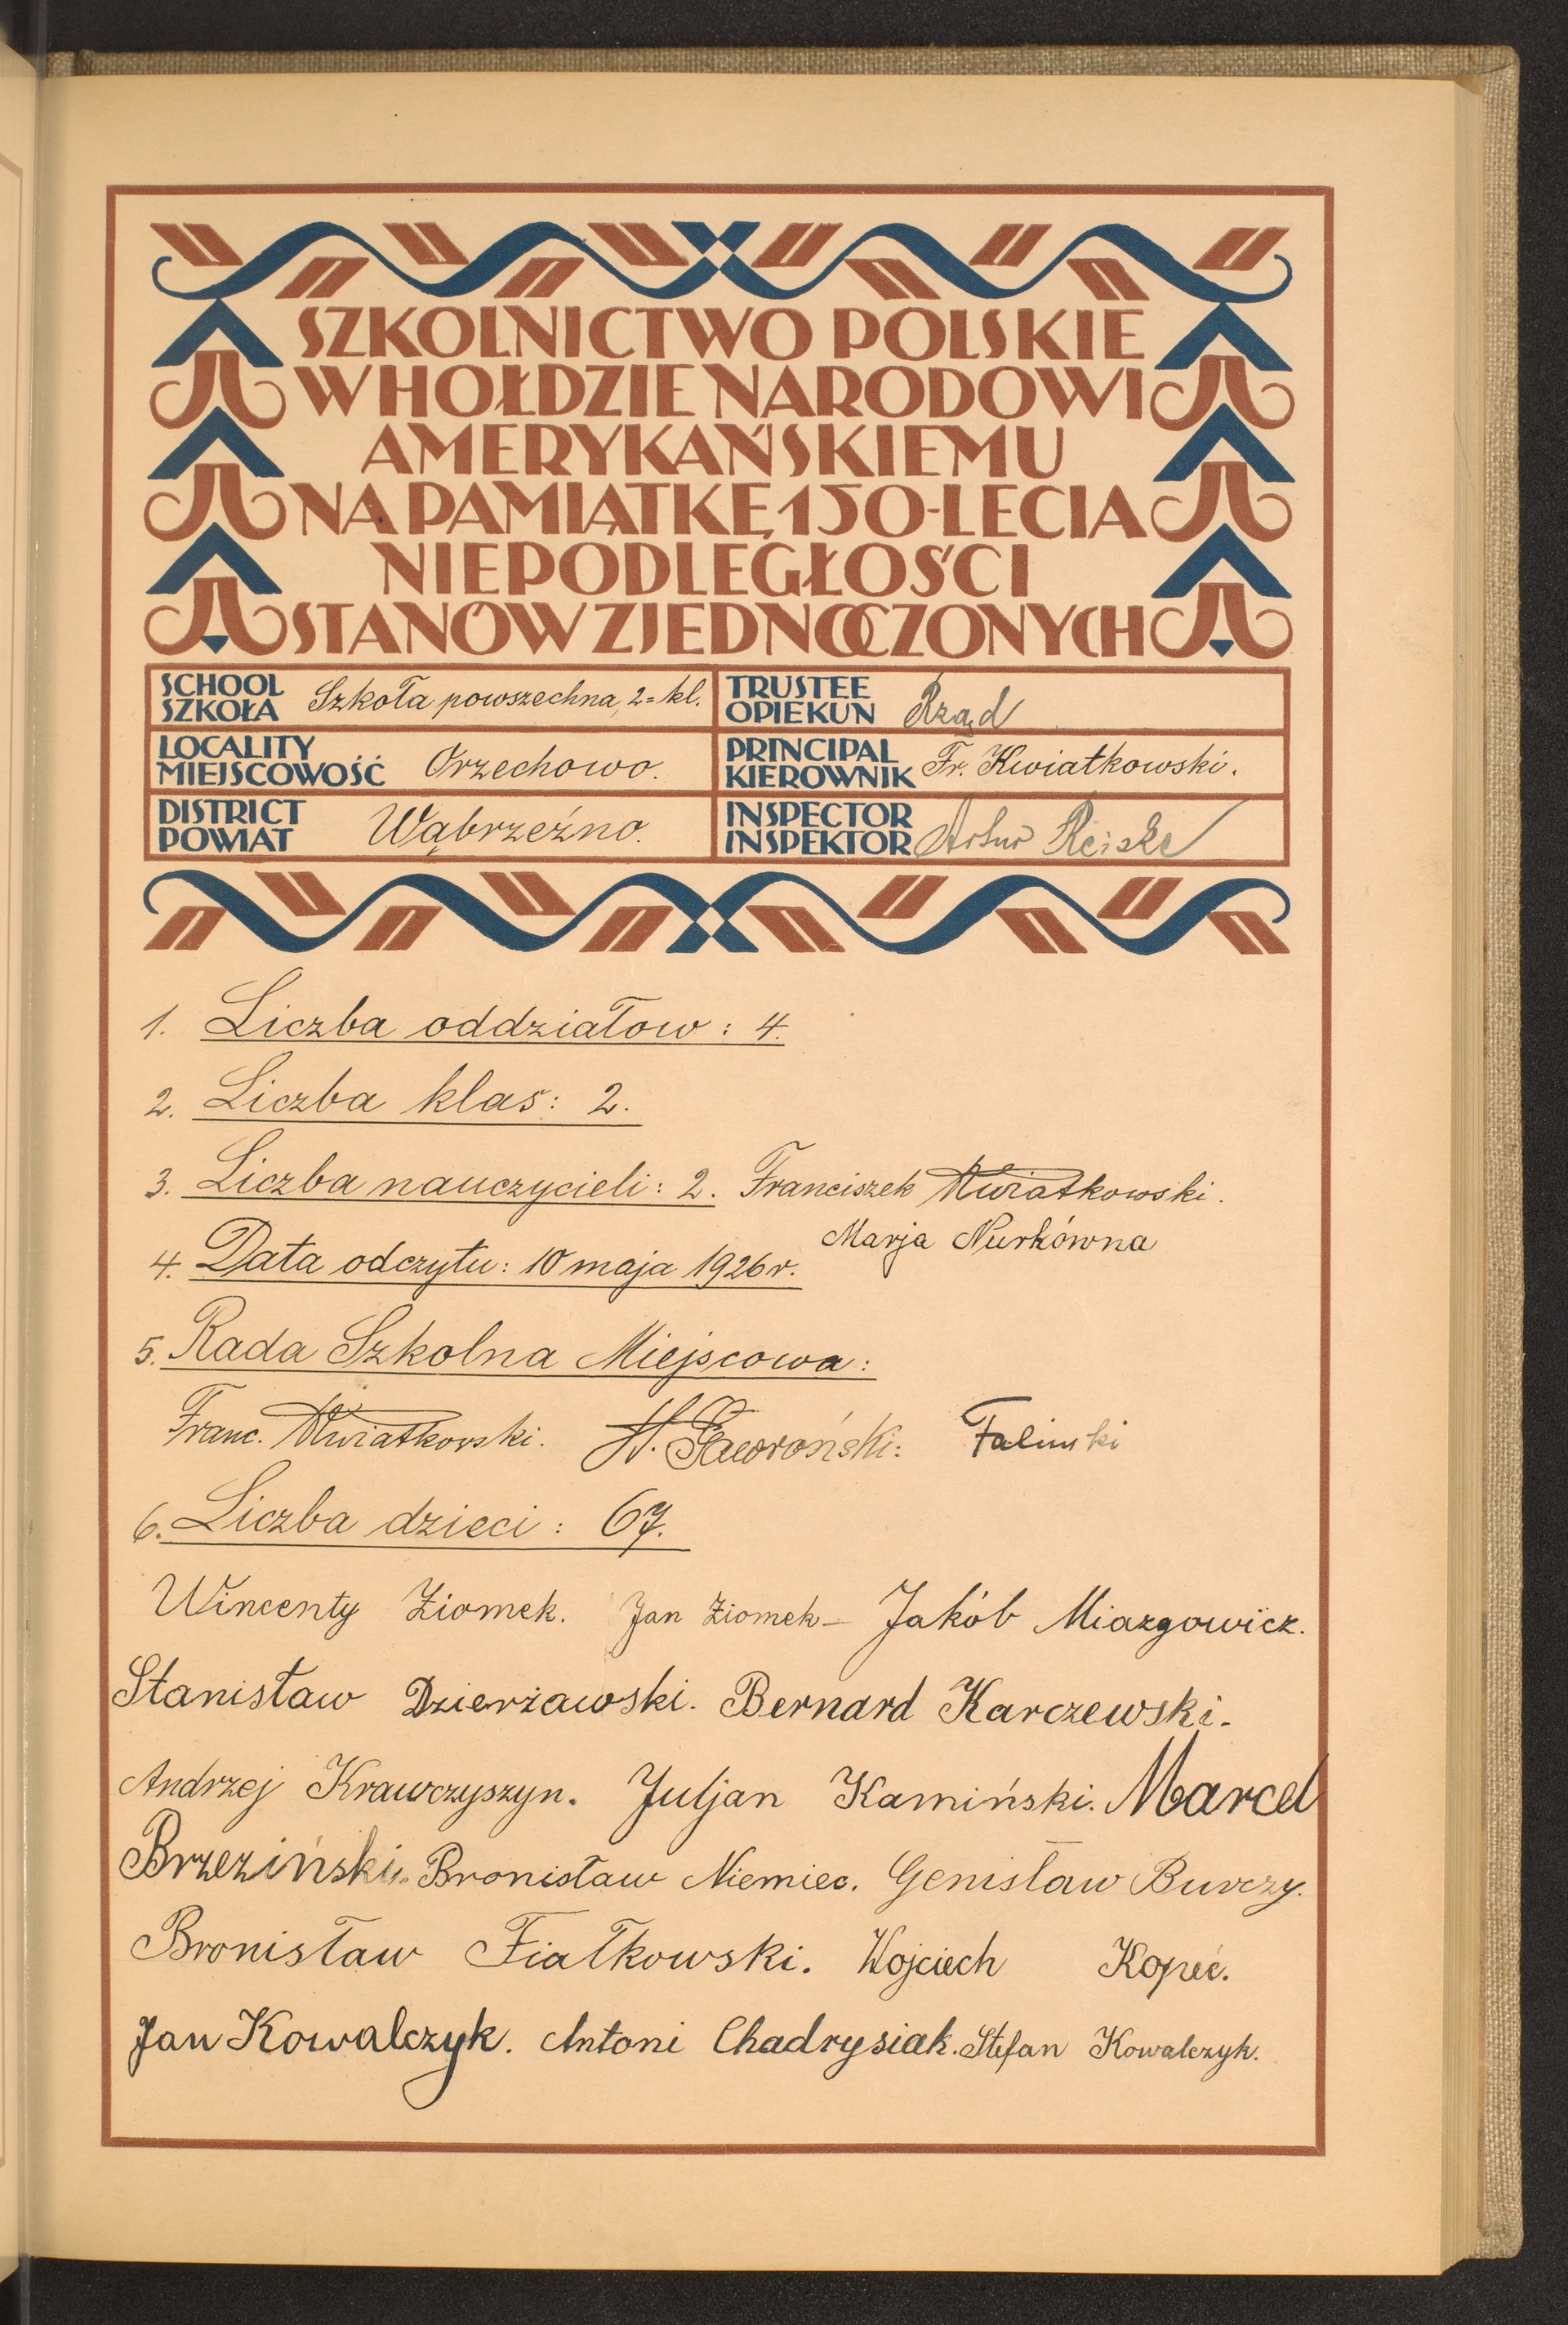 SZKOLNICTWO POLSKIE
W HOŁDZIE NARODOWI
AMERYKAŃSKIEMU
NA PAMIĄTKĘ 150-LECIA
NIEPODLEGŁOŚCI
STANÓW ZJEDNOCZONYCH
SCHOOL SZKOŁA Szkoła powszechna, 2=kl.
TRUSTEE OPIEKUN Rząd
LOCALITY MIEJSCOWOŚĆ Orzechowo.
PRINCIPAL KIEROWNIK Fr. Kwiatkowski.
DISTRICT POWIAT Wąbrzeźno.
INSPECTOR INSPEKTOR Artur Reiske
1. Liczba oddziałow: 4.
2. Liczba klas: 2.
3. Liczba nauczycieli: 2. Franciszek Kwiatkowski.
Marja Nurkówna
4. Data odczytu: 10 maja 1926 r.
5. Rada Szkolna Miejscowa:
Franc. Kwiatkowski. Gaworoński. Falinski
6. Liczba dzieci: 67.
Wincenty Ziomek. Jan Ziomek - Jakób Miazgowicz.
Stanisław Dzierżawski. Bernard Karczewski.
Andrzej Krawczyszyn. Juljan Kamiński. Marcel
Brzeziński. Bronisław Niemiec. Genisław Burczy.
Bronisław Fiałkowski. Wojciech Kopeć.
Jan Kowalczyk. Antoni Chadrysiak. Stefan Kowalczyk.